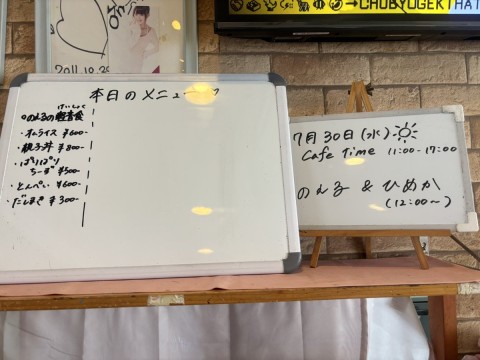 →CHUBYOGEKI HAT
2011.10.30
本日のメニュー
のえるの軽食
けいしょく
・オムライス ¥600-
・親子丼 ¥800-
・ぱりぱり
ちーず ¥500-
・とんぺい ¥600-
・だしまき ¥300-
7月30日(水)
Cafe Time 11:00-17:00
のえる & ひめか
(12:00~)